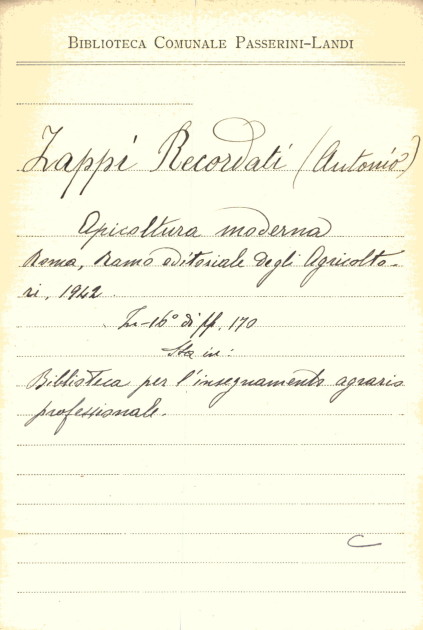 Biblioteca Comunale Passerini-Landi
Zappi Recordati (Antonio)
Apicoltura moderna
Roma, Ramo editoriale degli Agricolto-
ri, 1942.
In-16° di ff. 170
Sta in:
Biblioteca per l'insegnamento agrario
professionale.
C